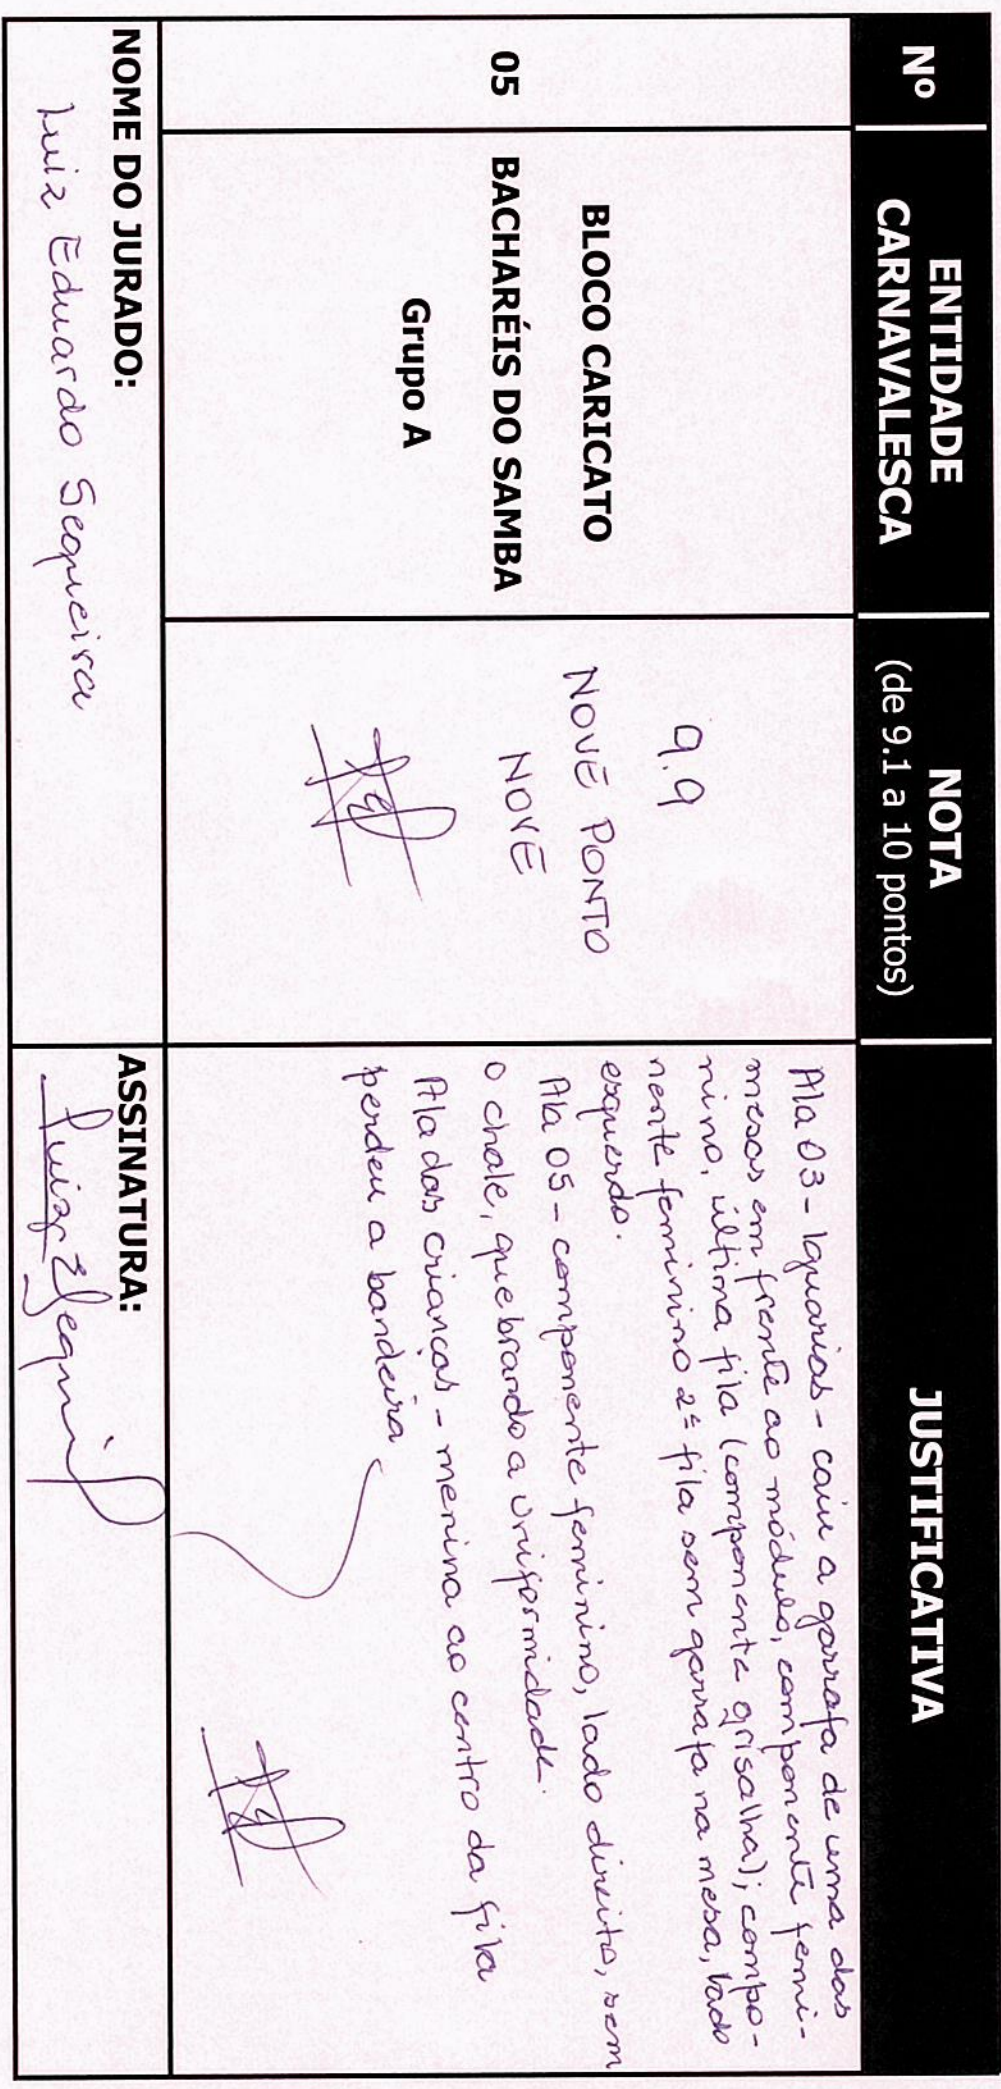 Nº
ENTIDADE
CARNAVALESCA
NOTA
(de 9.1 a 10 pontos)
JUSTIFICATIVA
05
BLOCO CARICATO
BACHARÉIS DO SAMBA
Grupo A
9.9
NOVE PONTO
NOVE
Ala 03 - Iguarias - caiu a garrafa de uma das
mesas em frente ao módulo, componente femi-
nino, última fila (componente grisalha); compo-
nente feminino 2ª fila sem garrafa na mesa, lado
esquerdo.
Ala 05 - componente feminino, lado direito, sem
o chale, quebrando a uniformidade.
Ala das crianças - menina ao centro da fila
perdeu a bandeira
NOME DO JURADO:
Luiz Eduardo Sequeira
ASSINATURA: